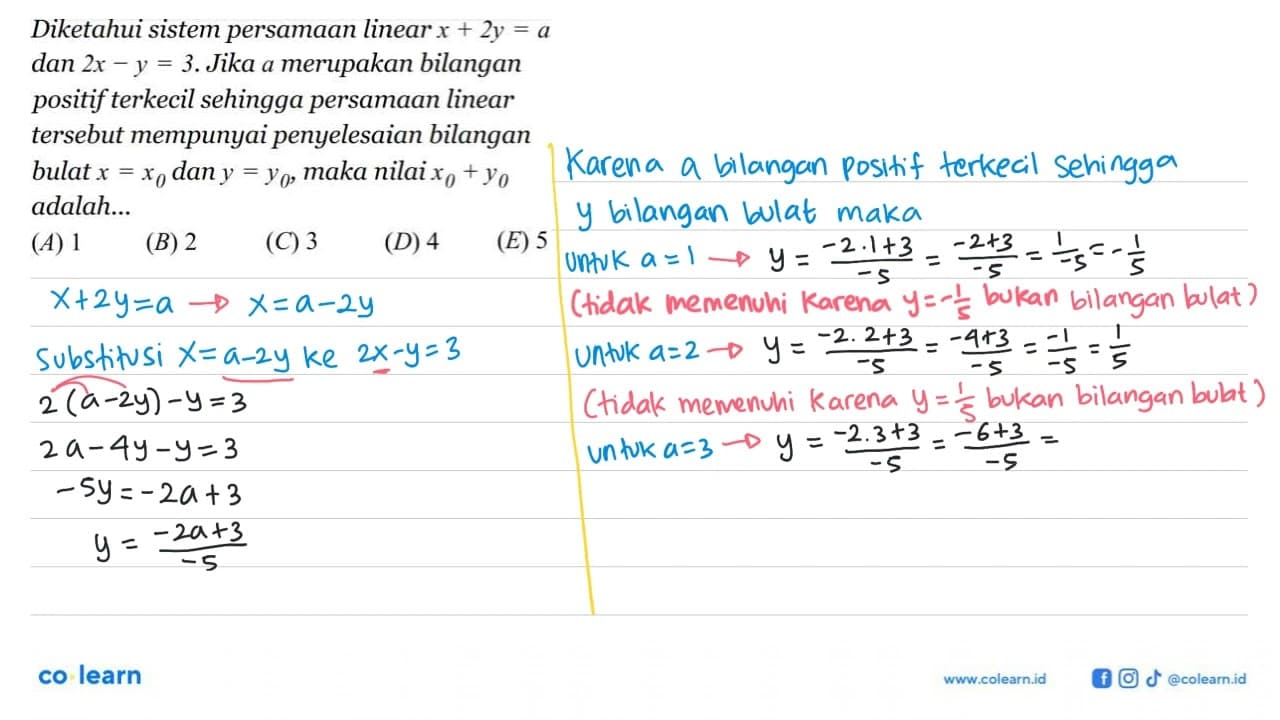 Diketahui sistem persamaan linear x + 2y = a
dan 2x − y = 3. Jika a merupakan bilangan
positif terkecil sehingga persamaan linear
tersebut mempunyai penyelesaian bilangan
bulat x = x₀ dan y = y₀, maka nilai x₀ + y₀
adalah...
(A) 1 (B) 2 (C) 3 (D) 4 (E) 5
x+2y=a → x=a-2y
Substitusi x=a-2y ke 2x-y=3
2(a-2y)-y=3
2a-4y-y=3
-5y=-2a+3
y = (-2a+3)/-5
Karena a bilangan positif terkecil sehingga
y bilangan bulat maka
untuk a=1 → y = (-2.1+3)/-5 = (-2+3)/-5 = 1/-5 = -1/5
(tidak memenuhi karena y=-1/5 bukan bilangan bulat)
untuk a=2 → y = (-2.2+3)/-5 = (-4+3)/-5 = -1/-5 = 1/5
(tidak memenuhi karena y=1/5 bukan bilangan bulat)
untuk a=3 → y = (-2.3+3)/-5 = (-6+3)/-5 =
co learn
www.colearn.id @colearn.id